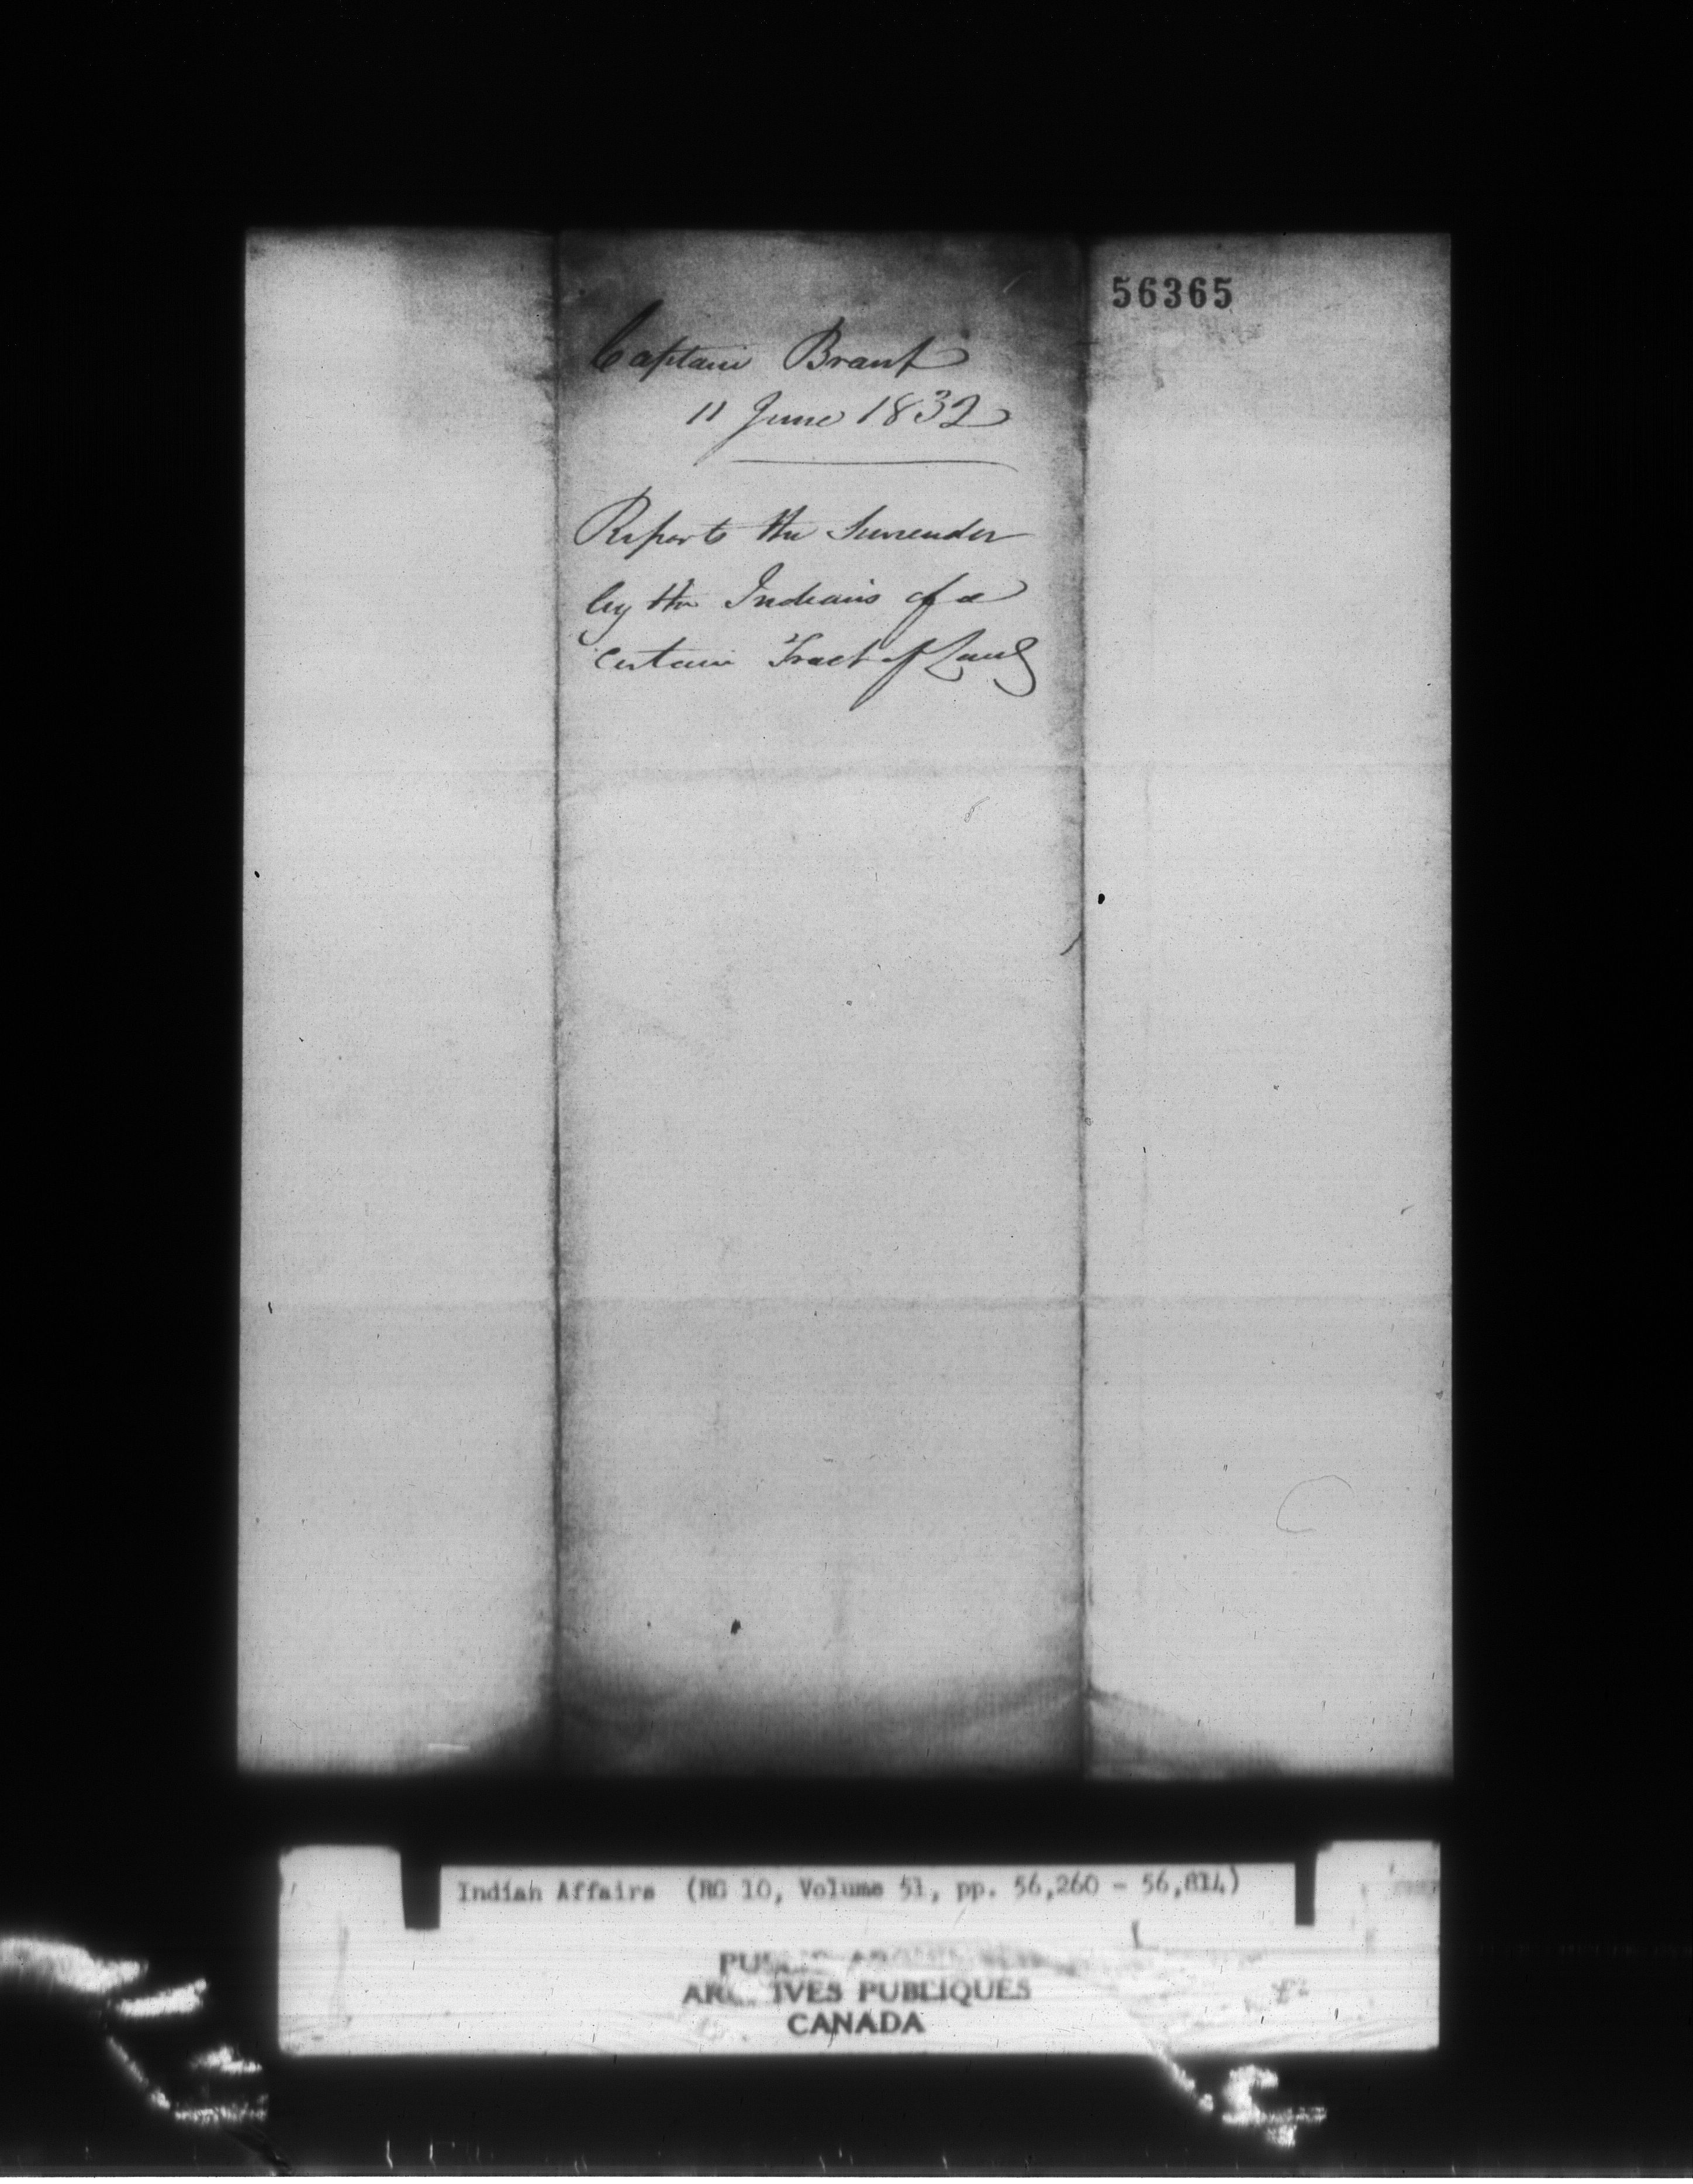 56365
Captain Brant
11 June 1832
Reports the Surrender
by the Indians of a
certain Tract of Land
Indian Affairs (RG 10, Volume 51, pp. 56,260 - 56,814)
ARCHIVES PUBLIQUES
CANADA